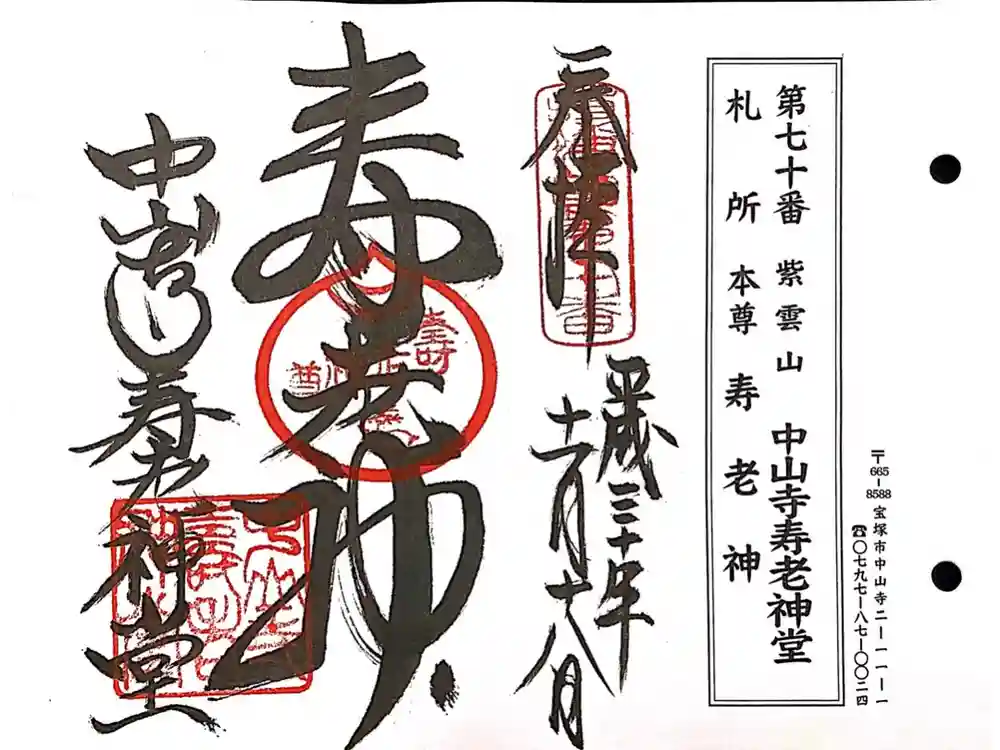 〒665-8588 宝塚市中山寺二ー一一ー一
☎〇七九七ー八七ー〇〇二四
第七十番 紫雲山 中山寺寿老神堂
札所本尊 寿老神
奉拝
平成三十年
十一月十八日
寿老神
中山寺
寿老神堂